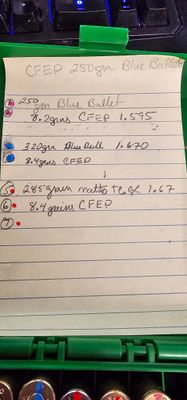 CFEP 250grn Blue Bullets
250
grn Blue Bullet
8.2grns CFEP 1.595
320grn Blue Bull 1.670
8.4grns CFEP
5 285grain 1.67
6 8.4grains CFEP
7